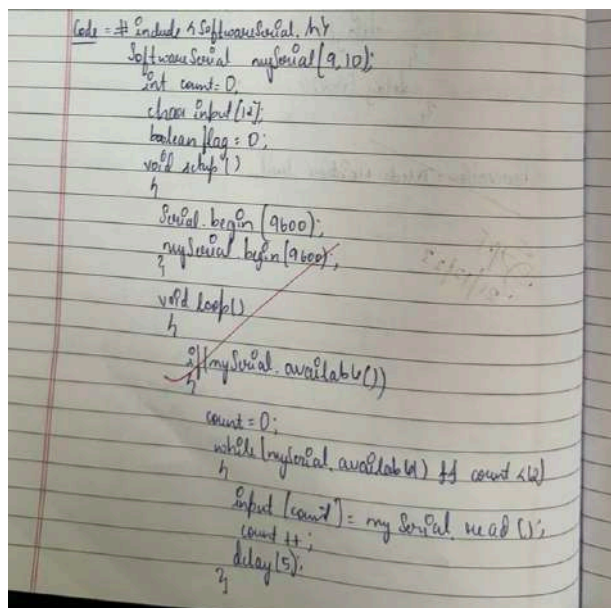 Code = # include <SoftwareSerial.h>
SoftwareSerial mySerial(9,10);
int count = 0;
char input[12];
boolean flag = 0;
void setup()
{
Serial.begin(9600);
mySerial.begin(9600);
}
void loop()
{
if(mySerial.available())
{
count = 0;
while(mySerial.available() && count <12)
{
input [count] = mySerial.read();
count ++;
delay(5);
}